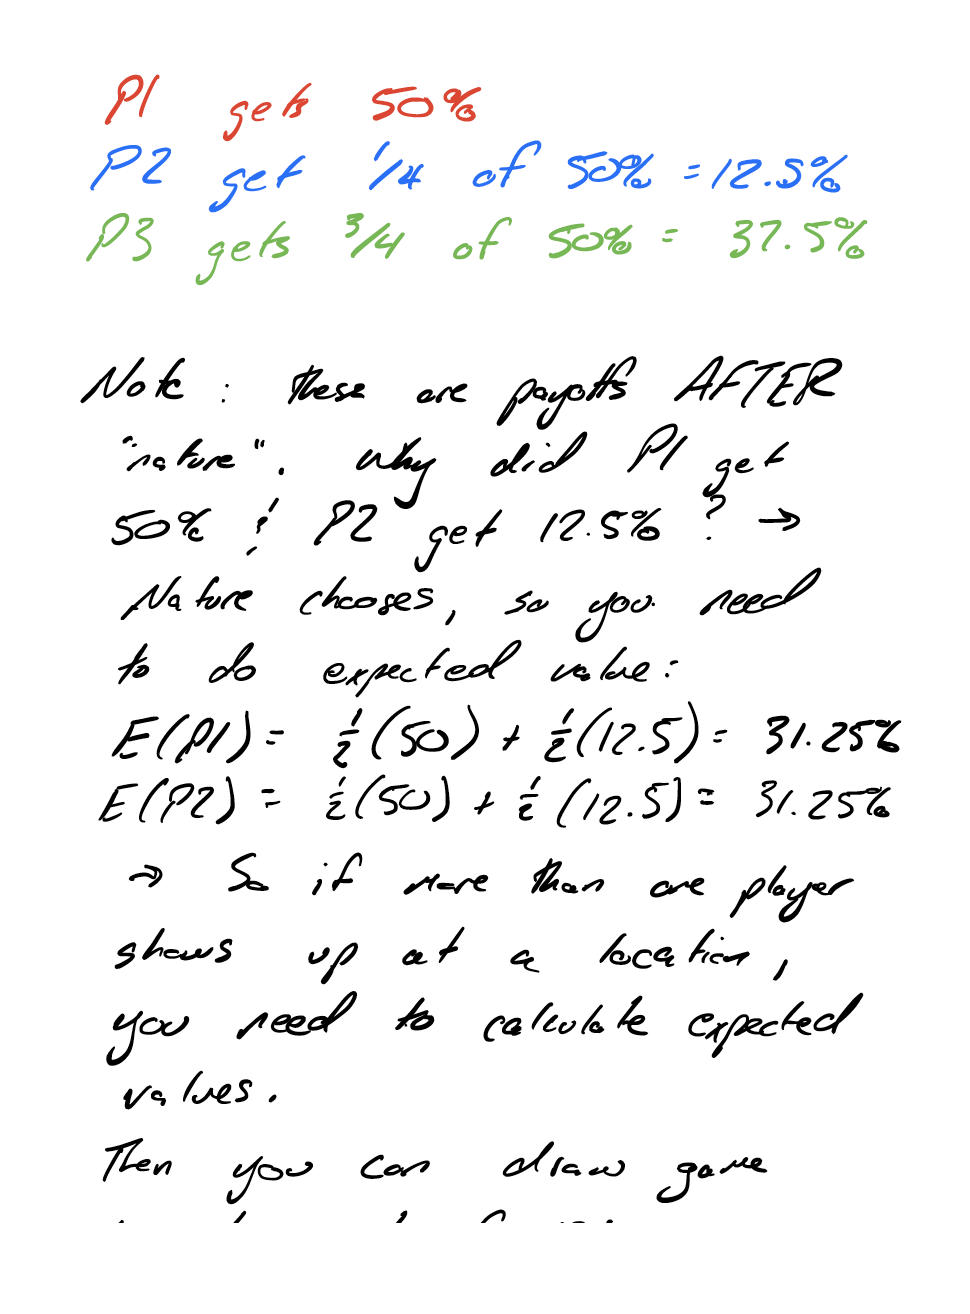 P1 gets 50%
P2 get 1/4 of 50% = 12.5%
P3 gets 3/4 of 50% = 37.5%
Note : these are payoffs AFTER
"nature". Why did P1 get
50% & P2 get 12.5% ? →
Nature chooses, so you need
to do expected value:
E(P1) = 1/2 (50) + 1/2 (12.5) = 31.25%
E(P2) = 1/2 (50) + 1/2 (12.5) = 31.25%
→ So if more than one player
shows up at a location,
you need to calculate expected
values.
Then you can draw game